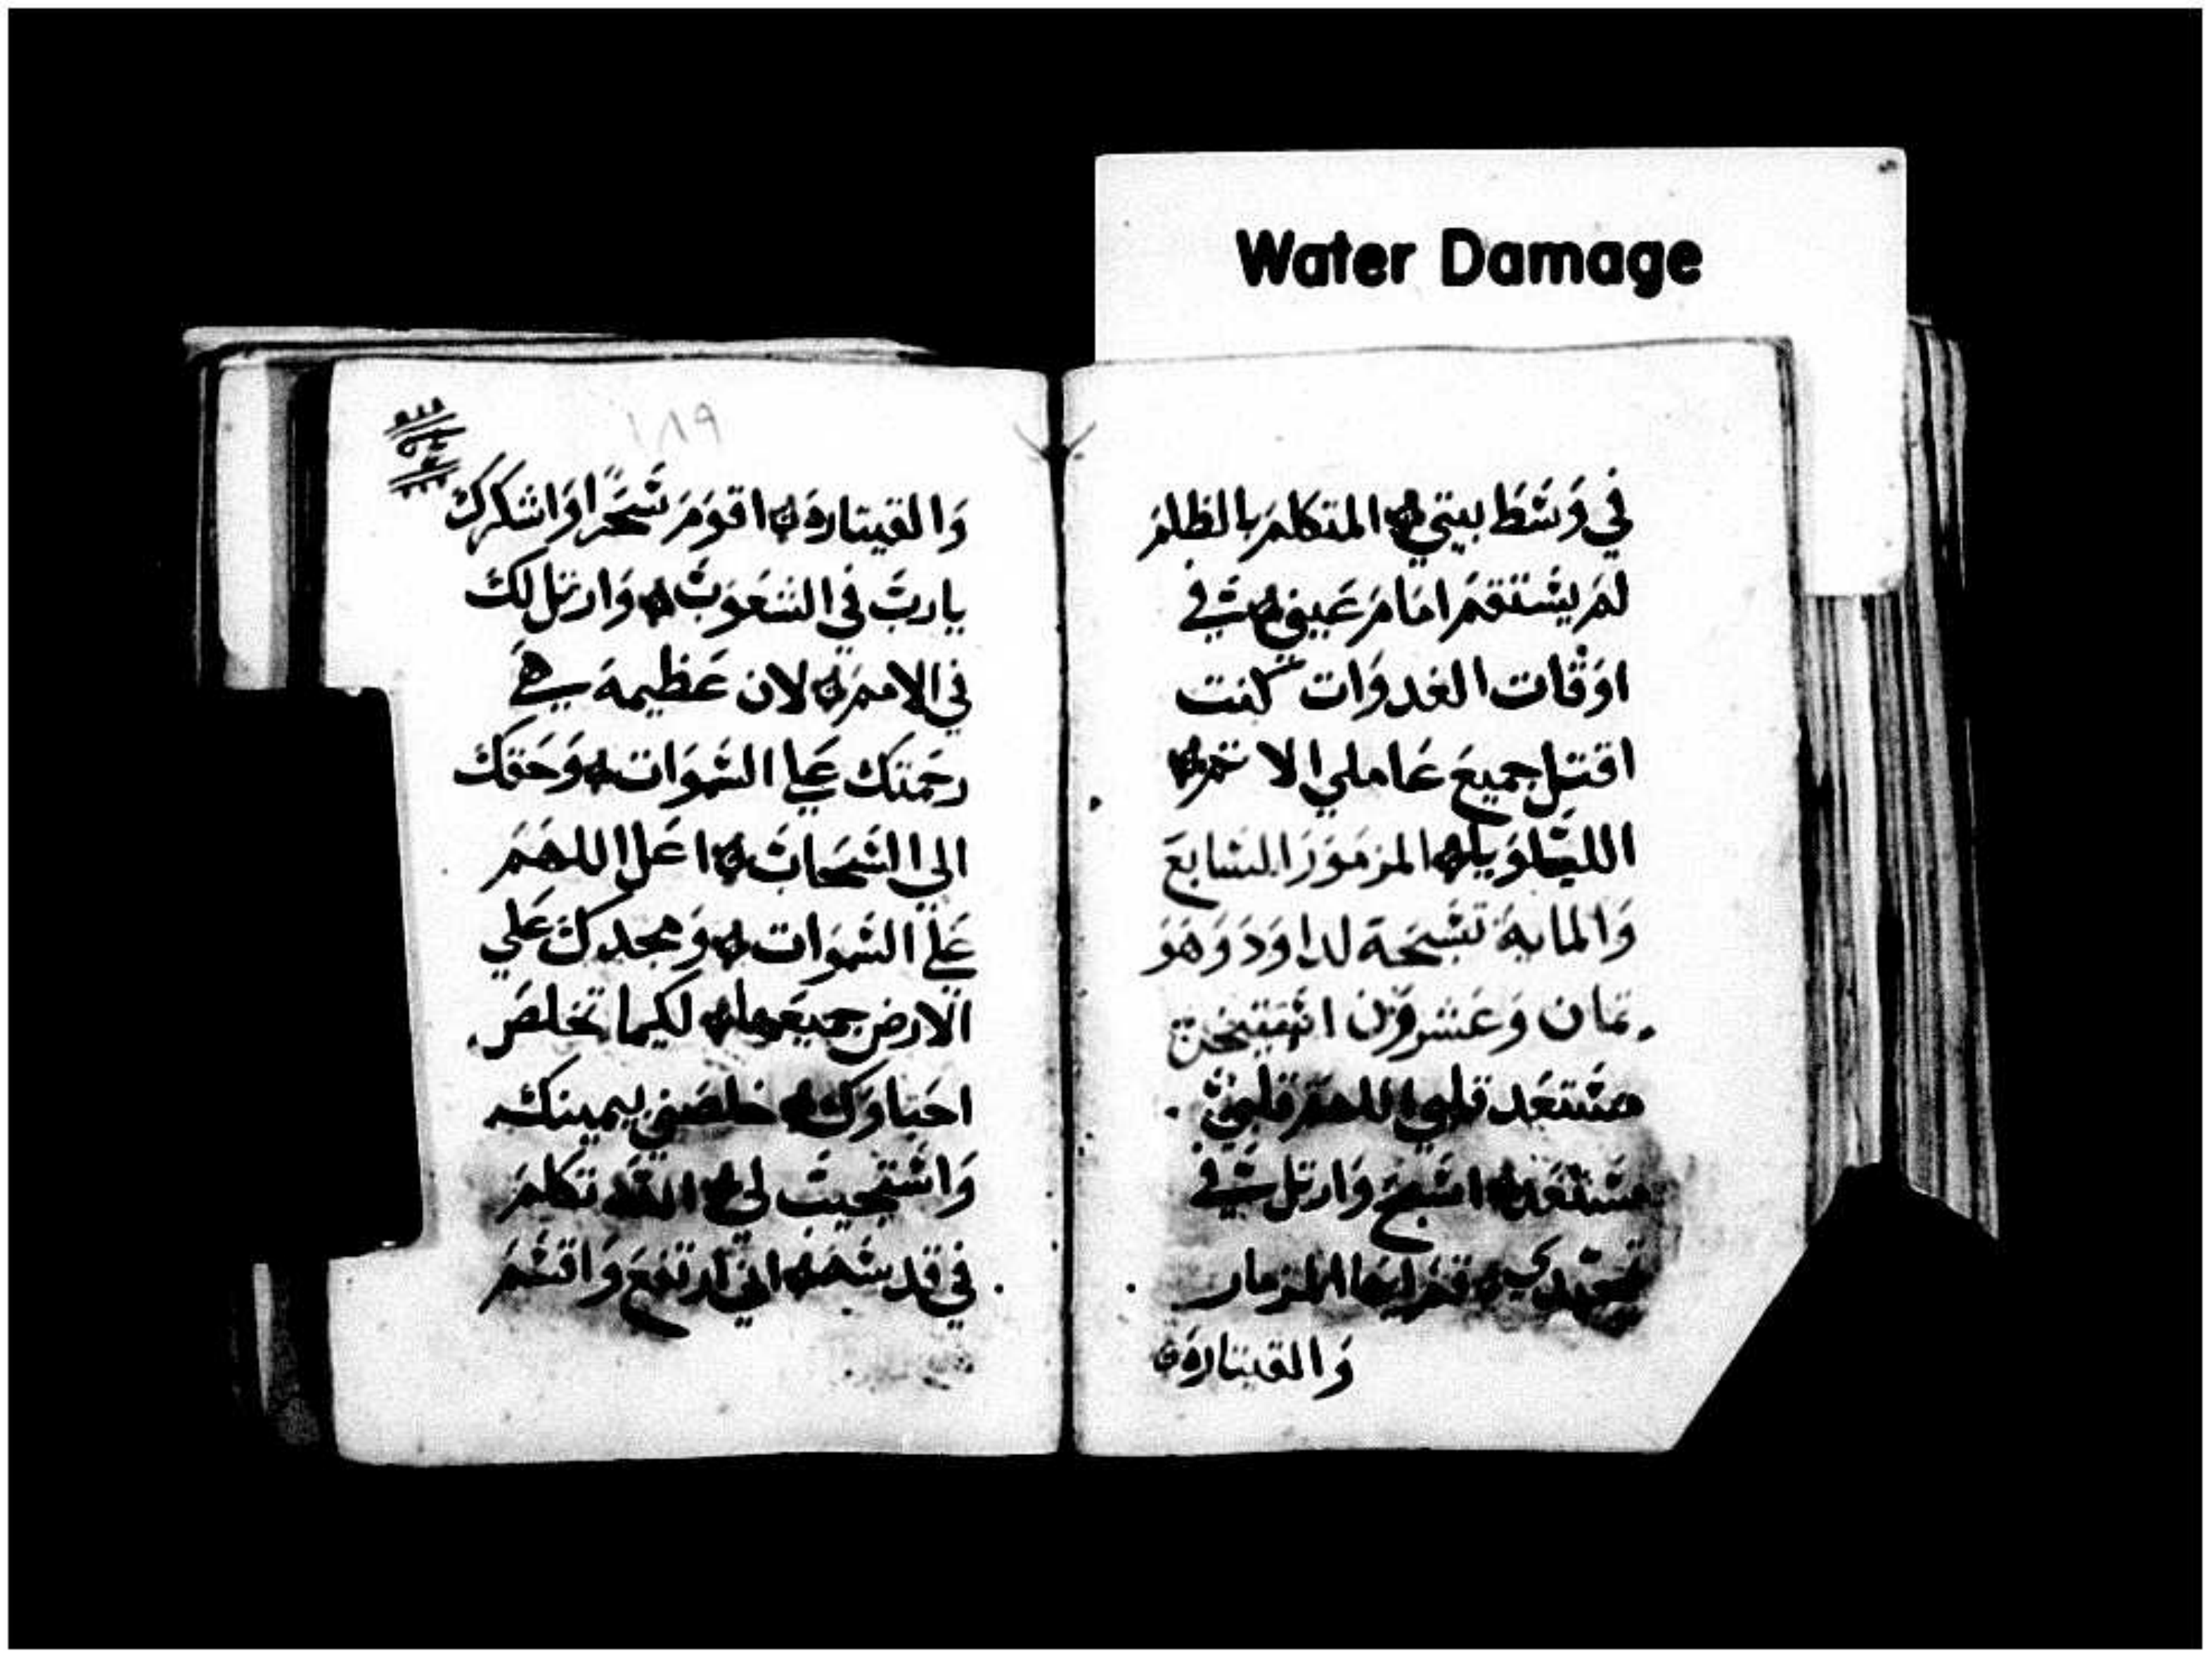 Water Damage
في وسط بيتي المتكلم بالظلم
لم يستقم امام عيني في
اوقات الغدوات كنت
اقتل جميع عاملي الاثم
الليلويا المزمور السابع
والمايه تسبحة لداود وهو
ثمان وعشرون
مستعد قلبي اللهم قلبي
مستعد اسبح وارتل في
تمجدي قم ايها المزمار
والقيتاره
١٨٩
والقيتاره اقوم سحرا واشكرك
يارب في الشعوب وارتل لك
في الامم لان عظيمة هي
رحمتك علي السموات وحقك
الي السحاب اعل اللهم
علي السموات ومجدك علي
الارض جميعها لكيما تخلص
احباوك خلصني بيمينك
واستجيب لي الله تكلم
في قدسه اني ارتفع واقسم